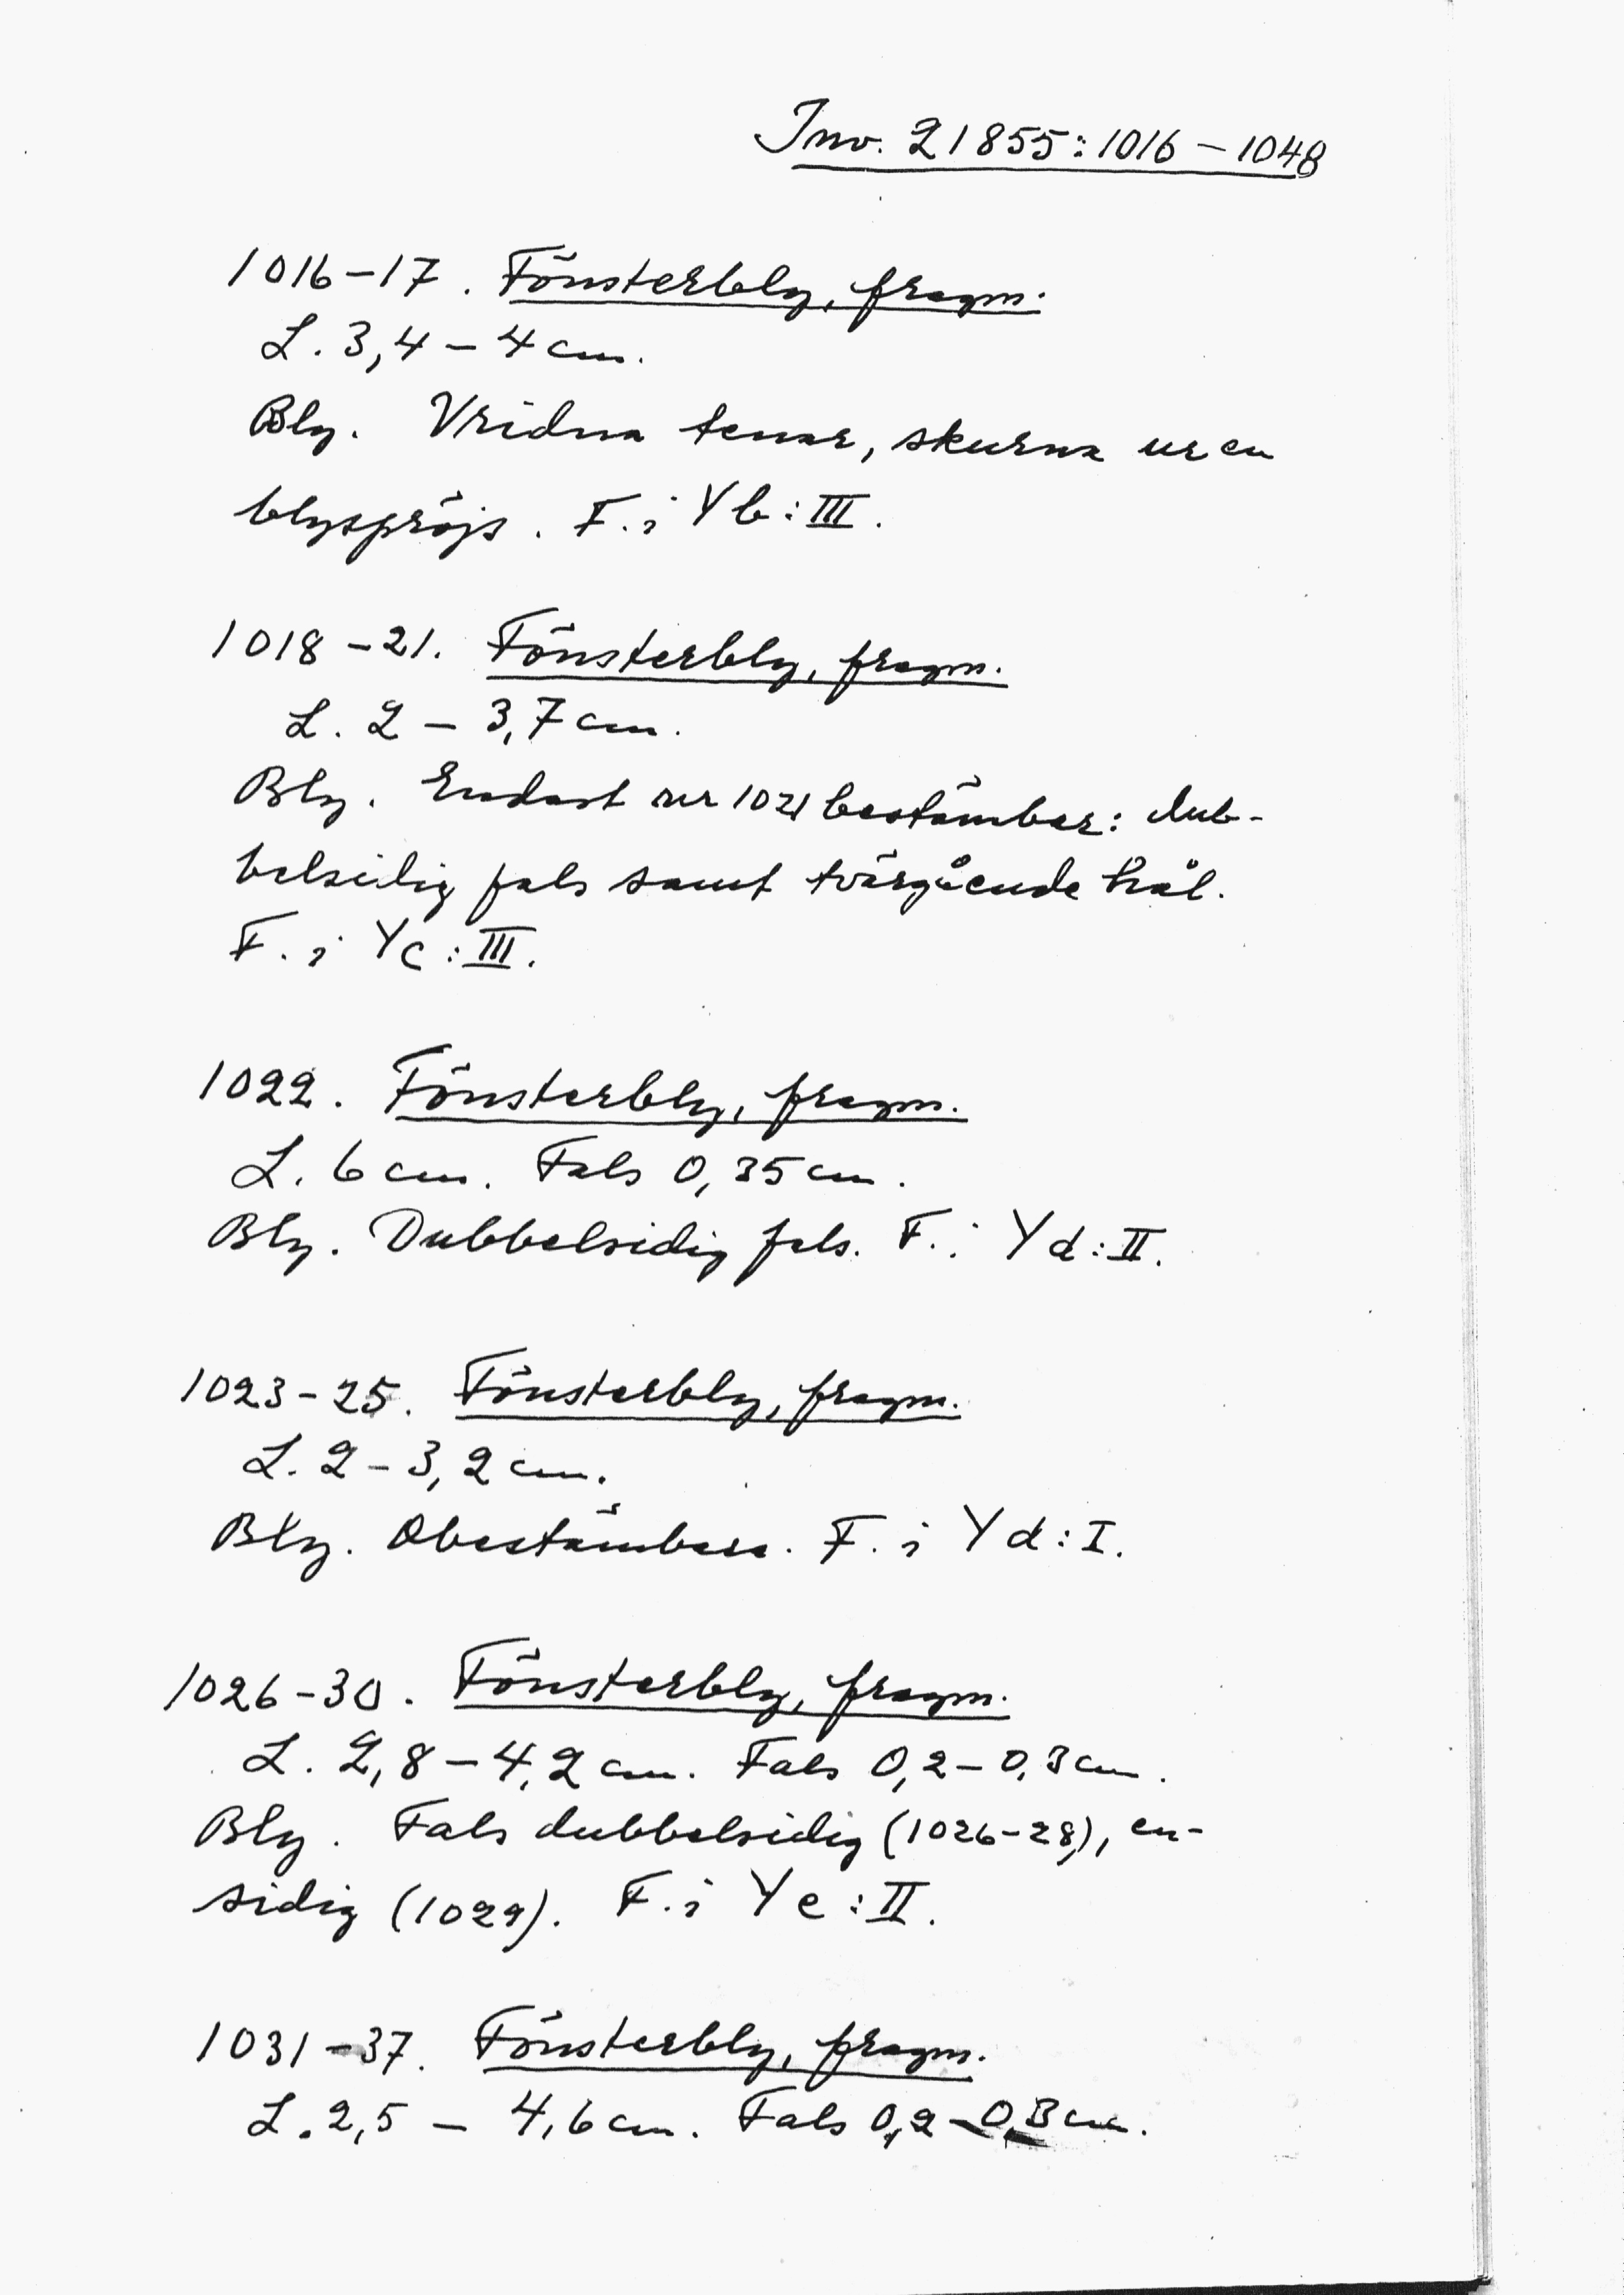 Inv. 21855:1016-1048
1016-17. Fönsterbly, fragm.
L. 3,4 - 4 cm.
Bly. Vridna tenar, skurna ur en
blyspröjs. F. i Yb:III.
1018-21. Fönsterbly, fragm.
L. 2 - 3,7 cm.
Bly. Endast nr 1021 bestämbar: dub-
belsidig fals samt tvärgående hål.
F. i Yc:III.
1022. Fönsterbly, fragm.
L. 6 cm. Fals 0,35 cm.
Bly. Dubbelsidig fals. F. i Yd:II.
1023-25. Fönsterbly, fragm.
L. 2 - 3,2 cm.
Bly. Obestämbara. F. i Yd:I.
1026-30. Fönsterbly, fragm.
L. 2,8 - 4,2 cm. Fals 0,2 - 0,3 cm.
Bly. Fals dubbelsidig (1026-28), en-
sidig (1029). F. i Ye:II.
1031-37. Fönsterbly, fragm.
L. 2,5 - 4,6 cm. Fals 0,2 - 0,3 cm.